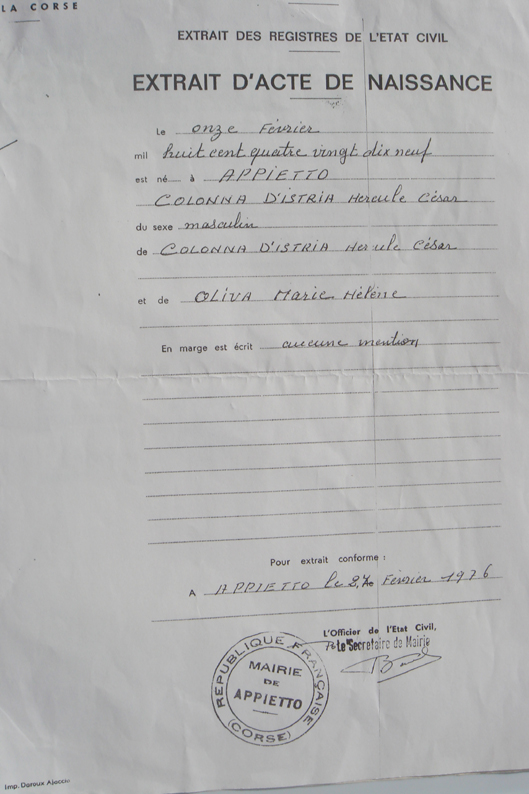 LA CORSE
EXTRAIT DES REGISTRES DE L'ETAT CIVIL
EXTRAIT D'ACTE DE NAISSANCE
Le onze Février
mil huit cent quatre vingt dix neuf
est né à APPIETTO
COLONNA D'ISTRIA Hercule César
du sexe masculin
de COLONNA D'ISTRIA Hercule César
et de OLIVA Marie Hélène
En marge est écrit aucune mention
Pour extrait conforme :
A APPIETTO le Février 1976
L'Officier de l'Etat Civil,
Le Secretaire de Mairie
REPUBLIQUE FRANÇAISE
MAIRIE
DE
APPIETTO
(CORSE)
Imp. Doroux Ajaccio